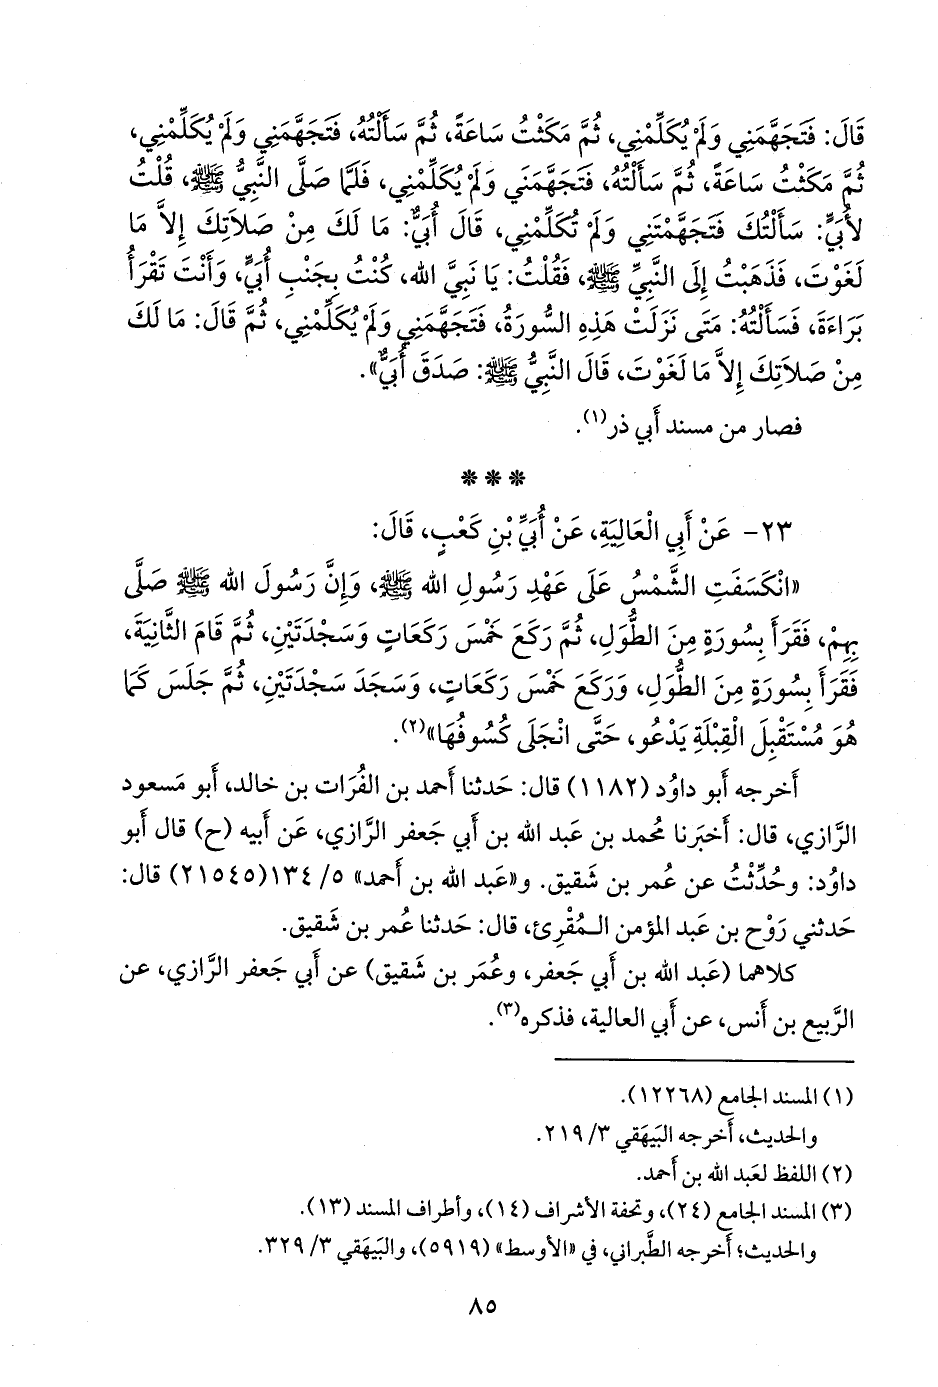 قَالَ: فَتَجَهَّمَنِي وَلَمْ يُكَلِّمْنِي، ثُمَّ مَكَثْتُ سَاعَةً، ثُمَّ سَأَلْتُهُ، فَتَجَهَّمَنِي وَلَمْ يُكَلِّمْنِي،
ثُمَّ مَكَثْتُ سَاعَةً، ثُمَّ سَأَلْتُهُ، فَتَجَهَّمَنَي وَلَمْ يُكَلِّمْنِي، فَلَمَّا صَلَّى النَّبِيُّ ﷺ، قُلْتُ
لأُبَيٍّ: سَأَلْتُكَ فَتَجَهَّمْتَنِي وَلَمْ تُكَلِّمْنِي، قَالَ أُبَيٌّ: مَا لَكَ مِنْ صَلاَتِكَ إِلاَّ مَا
لَغَوْتَ، فَذَهَبْتُ إِلَى النَّبِيِّ ﷺ، فَقُلْتُ: يَا نَبِيَّ الله، كُنْتُ بِجَنْبِ أُبَيٍّ، وَأَنْتَ تَقْرَأُ
بَرَاءَةَ، فَسَأَلْتُهُ: مَتَى نَزَلَتْ هَذِهِ السُّورَةُ، فَتَجَهَّمَنِي وَلَمْ يُكَلِّمْنِي، ثُمَّ قَالَ: مَا لَكَ
مِنْ صَلاَتِكَ إِلاَّ مَا لَغَوْتَ، قَالَ النَّبِيُّ ﷺ: صَدَقَ أُبَيٌّ».
فصار من مسند أَبي ذر(١).
* * *
٢٣- عَنْ أَبِي الْعَالِيَةِ، عَنْ أُبَيِّ بْنِ كَعْبٍ، قَالَ:
«انْكَسَفَتِ الشَّمْسُ عَلَى عَهْدِ رَسُولِ الله ﷺ، وَإِنَّ رَسُولَ الله ﷺ صَلَّى
بِهِمْ، فَقَرَأَ بِسُورَةٍ مِنَ الطُّوَلِ، ثُمَّ رَكَعَ خَمْسَ رَكَعَاتٍ وَسَجْدَتَيْنِ، ثُمَّ قَامَ الثَّانِيَةَ،
فَقَرَأَ بِسُورَةٍ مِنَ الطُّوَلِ، وَرَكَعَ خَمْسَ رَكَعَاتٍ، وَسَجَدَ سَجْدَتَيْنِ، ثُمَّ جَلَسَ كَمَا
هُوَ مُسْتَقْبِلَ الْقِبْلَةِ يَدْعُو، حَتَّى انْجَلَى كُسُوفُهَا»(٢).
أَخرجه أَبو داوُد (١١٨٢) قال: حَدثنا أَحمد بن الفُرَات بن خالد، أَبو مَسعود
الرَّازي، قال: أَخبَرنا مُحمد بن عَبد الله بن أَبي جَعفر الرَّازي، عَن أَبيه (ح) قال أَبو
داوُد: وحُدِّثْتُ عن عُمر بن شَقيق. و«عَبد الله بن أَحمد» ٥/ ١٣٤(٢١٥٤٥) قال:
حَدثني رَوْح بن عَبد المؤمن الـمُقْرِئ، قال: حَدثنا عُمر بن شَقيق.
كلاهما (عَبد الله بن أَبي جَعفر، وعُمَر بن شَقيق) عن أَبي جَعفر الرَّازي، عن
الرَّبيع بن أَنس، عن أَبي العالية، فذكره(٣).
(١) المسند الجامع (١٢٢٦٨).
والحديث، أَخرجه البَيهَقي ٣/ ٢١٩.
(٢) اللفظ لعَبد الله بن أَحمد.
(٣) المسند الجامع (٢٤)، وتحفة الأشراف (١٤)، وأطراف المسند (١٣).
والحديث؛ أَخرجه الطَّبراني، في «الأوسط» (٥٩١٩)، والبَيهَقي ٣/ ٣٢٩.
٨٥